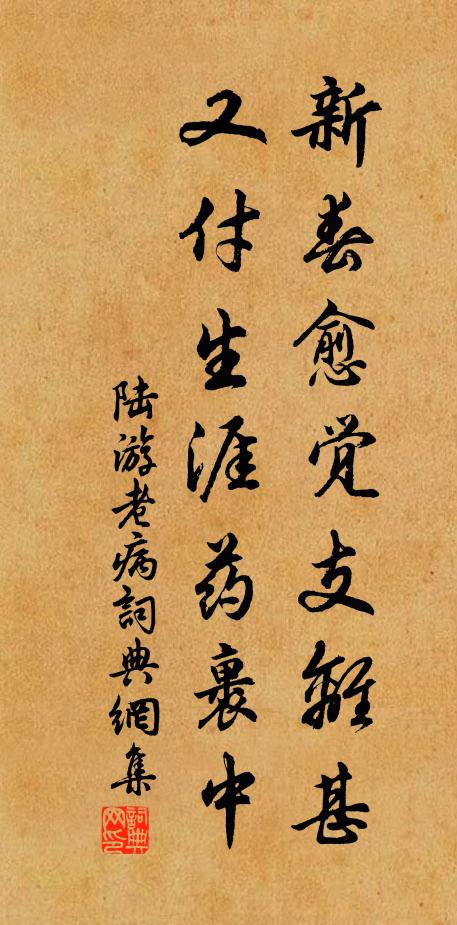 新春愈觉支離甚
又付生涯药裹中
陆游老病詞典網集
詞典网印